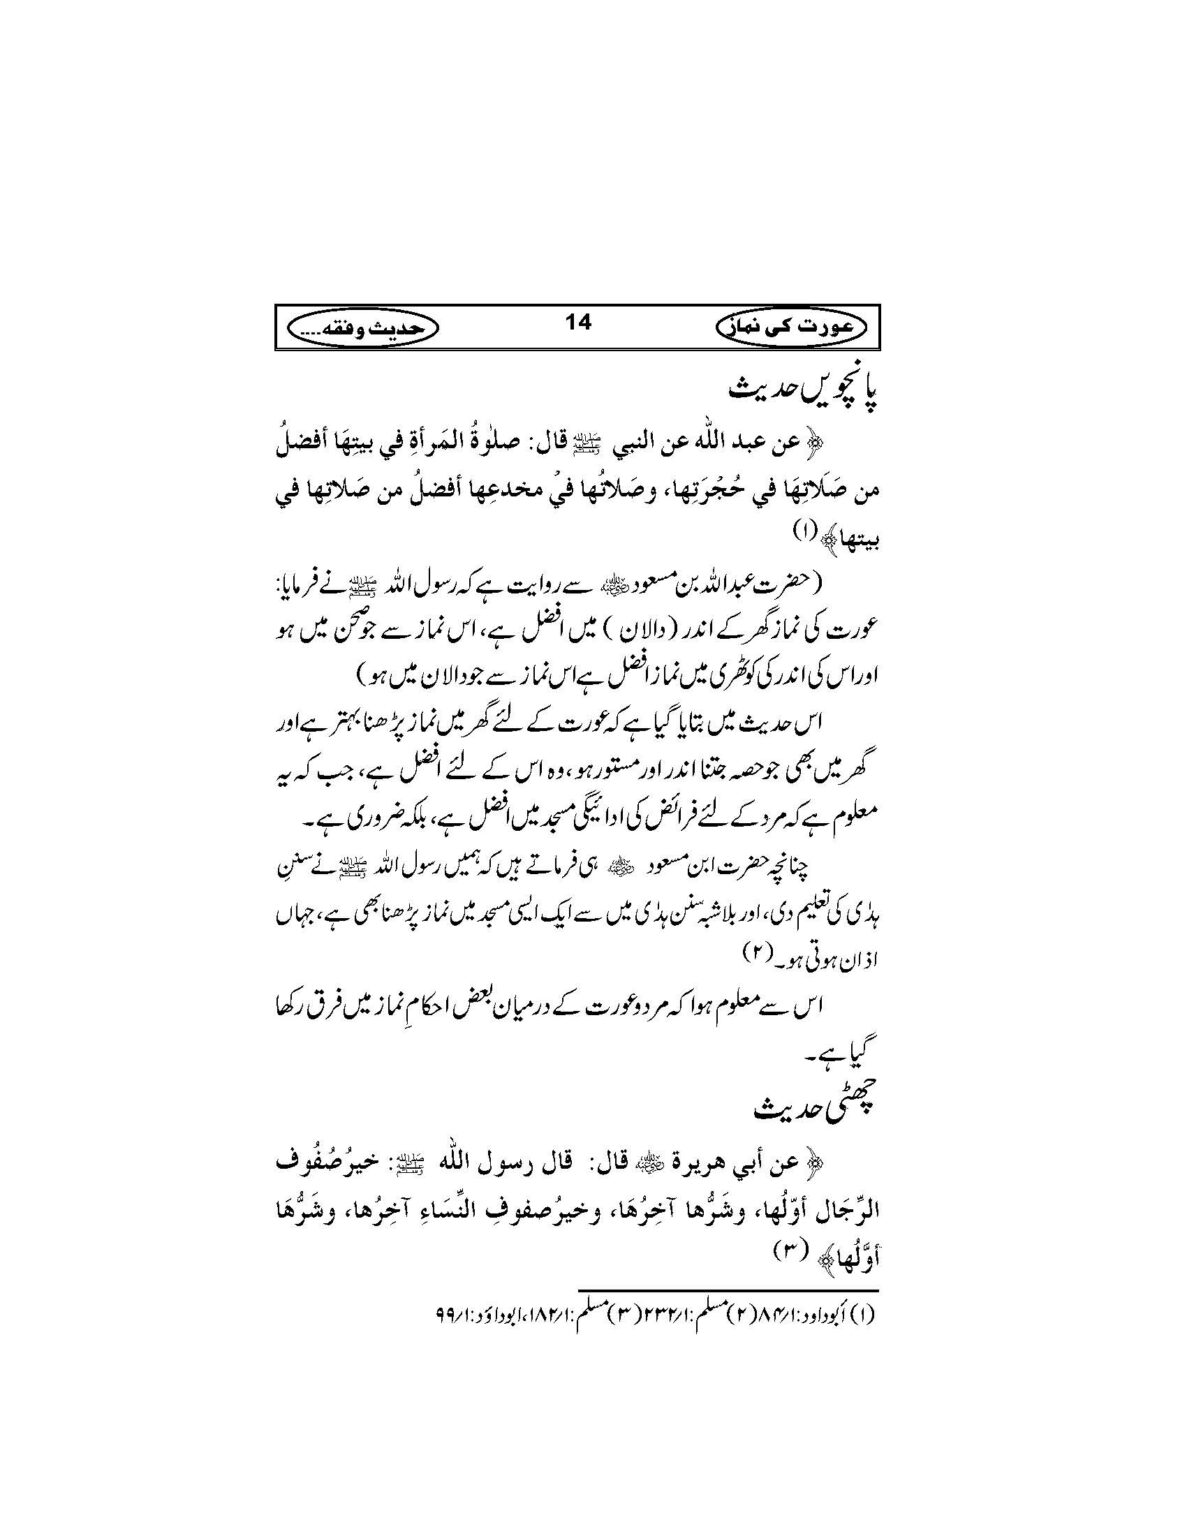 عورت کی نماز 14 حدیث و فقہ....
پانچویں حدیث
﴿ عن عبد الله عن النبي ﷺ قال: صلوٰةُ المَرأةِ في بيتِهَا أفضلُ
من صَلَاتِهَا في حُجْرَتِها، وصَلاتُها فيْ مخدعِها أفضلُ من صَلاتِها في
بيتها﴾(۱)
(حضرت عبداللہ بن مسعود ؓ سے روایت ہے کہ رسول اللہ ﷺ نے فرمایا:
عورت کی نماز گھر کے اندر (دالان) میں افضل ہے، اس نماز سے جو صحن میں ہو
اور اس کی اندر کی کوٹھری میں نماز افضل ہے اس نماز سے جو دالان میں ہو)
اس حدیث میں بتایا گیا ہے کہ عورت کے لئے گھر میں نماز پڑھنا بہتر ہے اور
گھر میں بھی جو حصہ جتنا اندر اور مستور ہو، وہ اس کے لئے افضل ہے، جب کہ یہ
معلوم ہے کہ مرد کے لئے فرائض کی ادائیگی مسجد میں افضل ہے، بلکہ ضروری ہے۔
چنانچہ حضرت ابن مسعود ؓ ہی فرماتے ہیں کہ ہمیں رسول اللہ ﷺ نے سننِ
ہدٰی کی تعلیم دی، اور بلاشبہ سنن ہدٰی میں سے ایک ایسی مسجد میں نماز پڑھنا بھی ہے، جہاں
اذان ہوتی ہو۔(۲)
اس سے معلوم ہوا کہ مرد و عورت کے درمیان بعض احکامِ نماز میں فرق رکھا
گیا ہے۔
چھٹی حدیث
﴿ عن أبي هريرة ؓ قال: قال رسول الله ﷺ: خيرُ صُفُوف
الرِّجَال أوّلُها، وشَرُّها آخِرُهَا، وخيرُ صفوفِ النِّسَاءِ آخِرُها، وشَرُّهَا
أوَّلُها﴾ (۳)
(۱) أبوداود:۱/۸۴(۲)مسلم:۱/۲۳۲(۳)مسلم:۱/۱۸۲،ابوداؤد:۱/۹۹